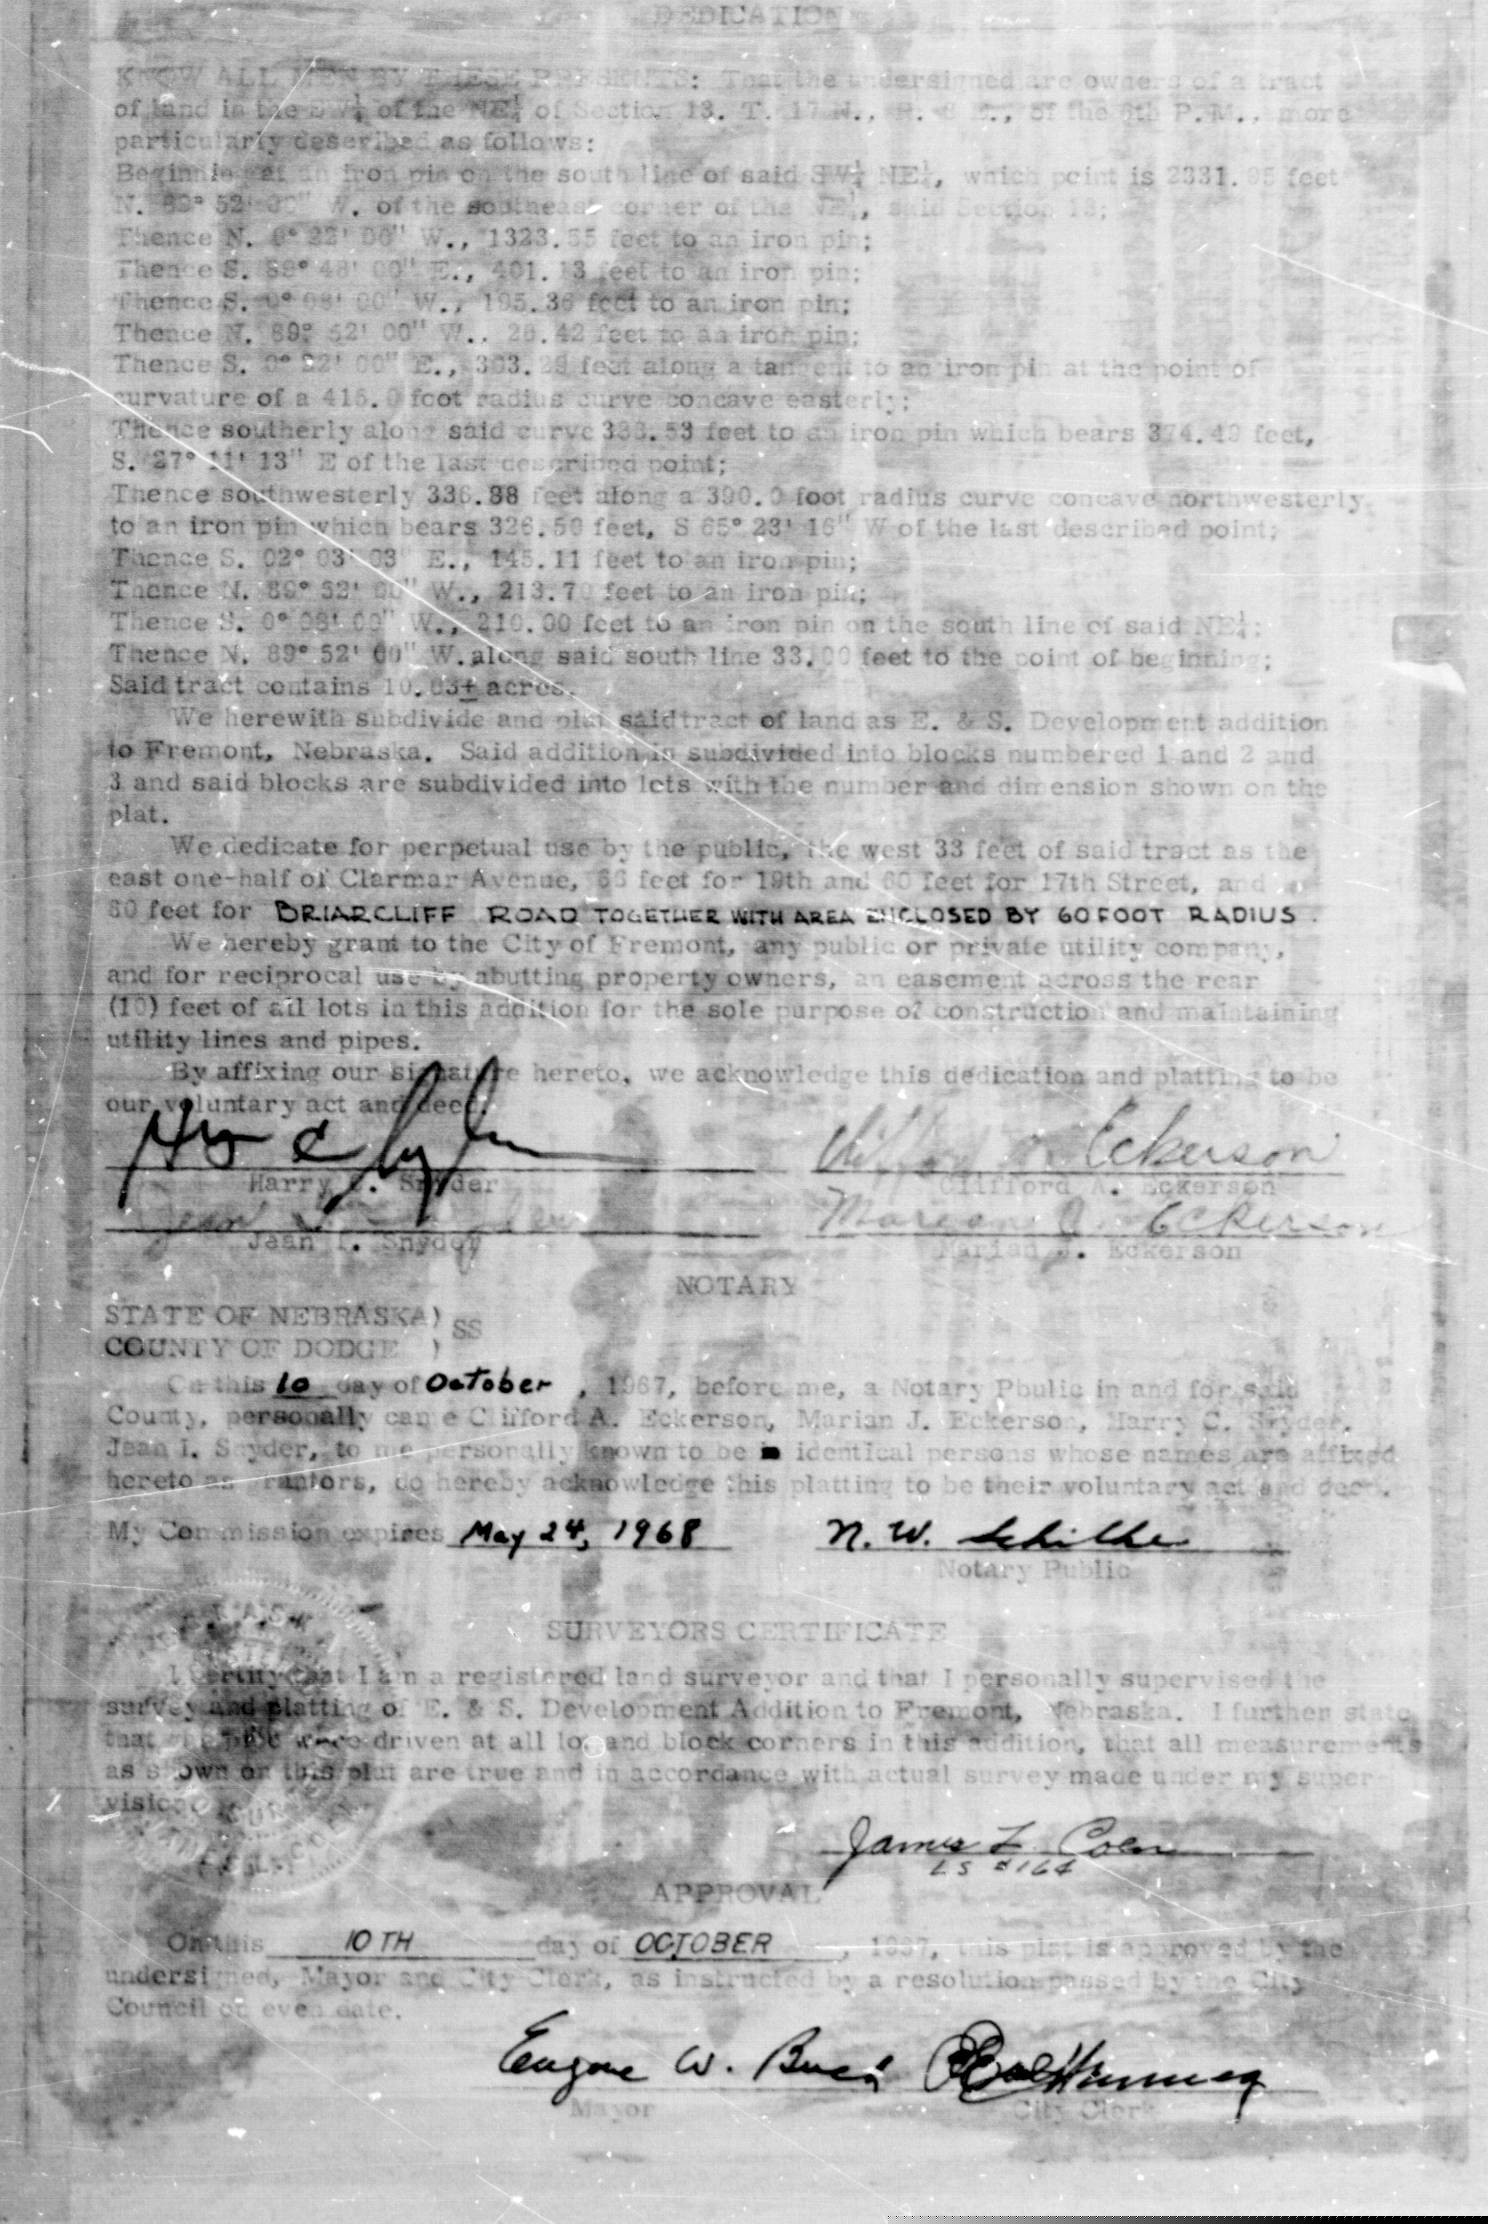 DEDICATION
KNOW ALL MEN BY THESE PRESENTS: That the undersigned are owners of a tract
of land in the SW¼ of the NE¼ of Section 13. T. 17 N., R. 8 E., of the 6th P.M., more
particularly described as follows:
Beginning at an iron pin on the south line of said SW¼ NE¼, which point is 2331.95 feet
N. 89° 52' 00" W. of the southeast corner of the NE¼, said Section 13;
Thence N. 0° 22' 00" W., 1323.55 feet to an iron pin;
Thence S. 89° 48' 00" E., 401.13 feet to an iron pin;
Thence S. 0° 08' 00" W., 195.36 feet to an iron pin;
Thence N. 89° 52' 00" W., 26.42 feet to an iron pin;
Thence S. 0° 22' 00" E., 303.29 feet along a tangent to an iron pin at the point of
curvature of a 415.0 foot radius curve concave easterly;
Thence southerly along said curve 388.53 feet to an iron pin which bears 374.49 feet,
S. 27° 11' 13" E of the last described point;
Thence southwesterly 336.88 feet along a 390.0 foot radius curve concave northwesterly
to an iron pin which bears 326.50 feet, S 65° 23' 16" W of the last described point;
Thence S. 02° 03' 03" E., 145.11 feet to an iron pin;
Thence N. 89° 52' 00" W., 213.70 feet to an iron pin;
Thence S. 0° 08' 00" W., 210.00 feet to an iron pin on the south line of said NE¼;
Thence N. 89° 52' 00" W. along said south line 33.00 feet to the point of beginning;
Said tract contains 10.03± acres.
We herewith subdivide and plat said tract of land as E. & S. Development addition
to Fremont, Nebraska. Said addition is subdivided into blocks numbered 1 and 2 and
3 and said blocks are subdivided into lots with the number and dimension shown on the
plat.
We dedicate for perpetual use by the public, the west 33 feet of said tract as the
east one-half of Clarmar Avenue, 66 feet for 19th and 60 feet for 17th Street, and
60 feet for BRIARCLIFF ROAD TOGETHER WITH AREA ENCLOSED BY 60 FOOT RADIUS.
We hereby grant to the City of Fremont, any public or private utility company,
and for reciprocal use by abutting property owners, an easement across the rear
(10) feet of all lots in this addition for the sole purpose of construction and maintaining
utility lines and pipes.
By affixing our signature hereto, we acknowledge this dedication and platting to be
our voluntary act and deed.
Clifford A. Eckerson
Harry C. Snyder Clifford A. Eckerson
Jean I. Snyder Marian J. Eckerson
Jean I. Snyder Marian J. Eckerson
NOTARY
STATE OF NEBRASKA)
SS
COUNTY OF DODGE )
On this 10 day of October, 1967, before me, a Notary Pbulic in and for said
County, personally came Clifford A. Eckerson, Marian J. Eckerson, Harry C. Snyder,
Jean I. Snyder, to me personally known to be identical persons whose names are affixed
hereto as Grantors, do hereby acknowledge this platting to be their voluntary act and deed.
My Commission expires May 24, 1968 N. W. Schilke
Notary Public
SURVEYORS CERTIFICATE
I certify that I am a registered land surveyor and that I personally supervised the
survey and platting of E. & S. Development Addition to Fremont, Nebraska. I further state
that were driven at all lot and block corners in this addition, that all measurements
as shown on this plat are true and in accordance with actual survey made under my super-
vision.
James L. Coen
LS #164
APPROVAL
On this 10TH day of OCTOBER, 1967, this plat is approved by the
undersigned, Mayor and City Clerk, as instructed by a resolution passed by the City
Council of even date.
Eugene W.
Mayor City Clerk